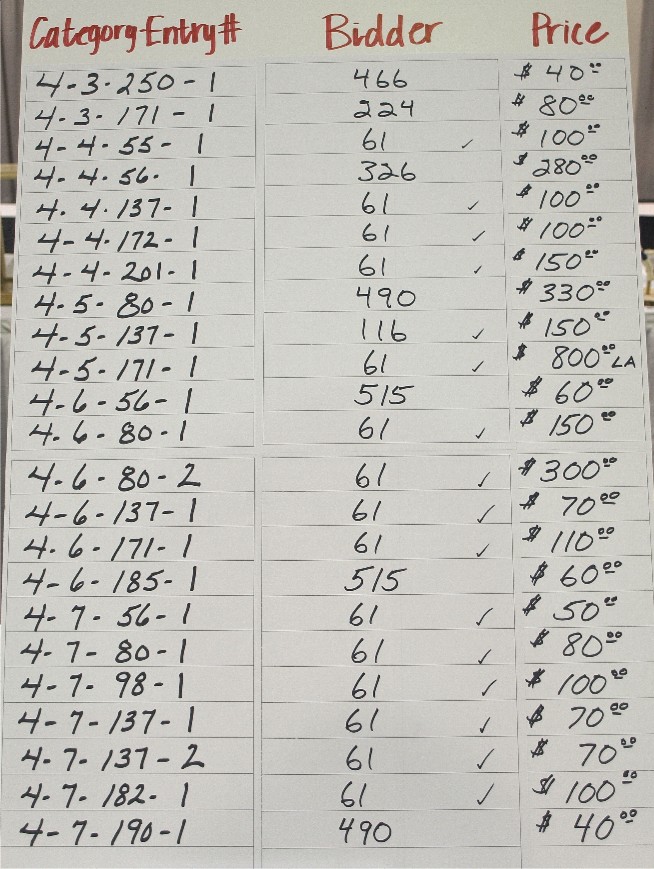 Category-Entry# Bidder Price
4-3-250-1 466 $40.00
4-3-171-1 224 $80.00
4-4-55-1 61 ✓ $100.00
4-4-56-1 326 $280.00
4-4-137-1 61 ✓ $100.00
4-4-172-1 61 ✓ $100.00
4-4-201-1 61 ✓ $150.00
4-5-80-1 490 $330.00
4-5-137-1 116 ✓ $150.00
4-5-171-1 61 ✓ $800.00 LA
4-6-56-1 515 $60.00
4-6-80-1 61 ✓ $150.00
4-6-80-2 61 ✓ $300.00
4-6-137-1 61 ✓ $70.00
4-6-171-1 61 ✓ $110.00
4-6-185-1 515 $60.00
4-7-56-1 61 ✓ $50.00
4-7-80-1 61 ✓ $80.00
4-7-98-1 61 ✓ $100.00
4-7-137-1 61 ✓ $70.00
4-7-137-2 61 ✓ $70.00
4-7-182-1 61 ✓ $100.00
4-7-190-1 490 $40.00